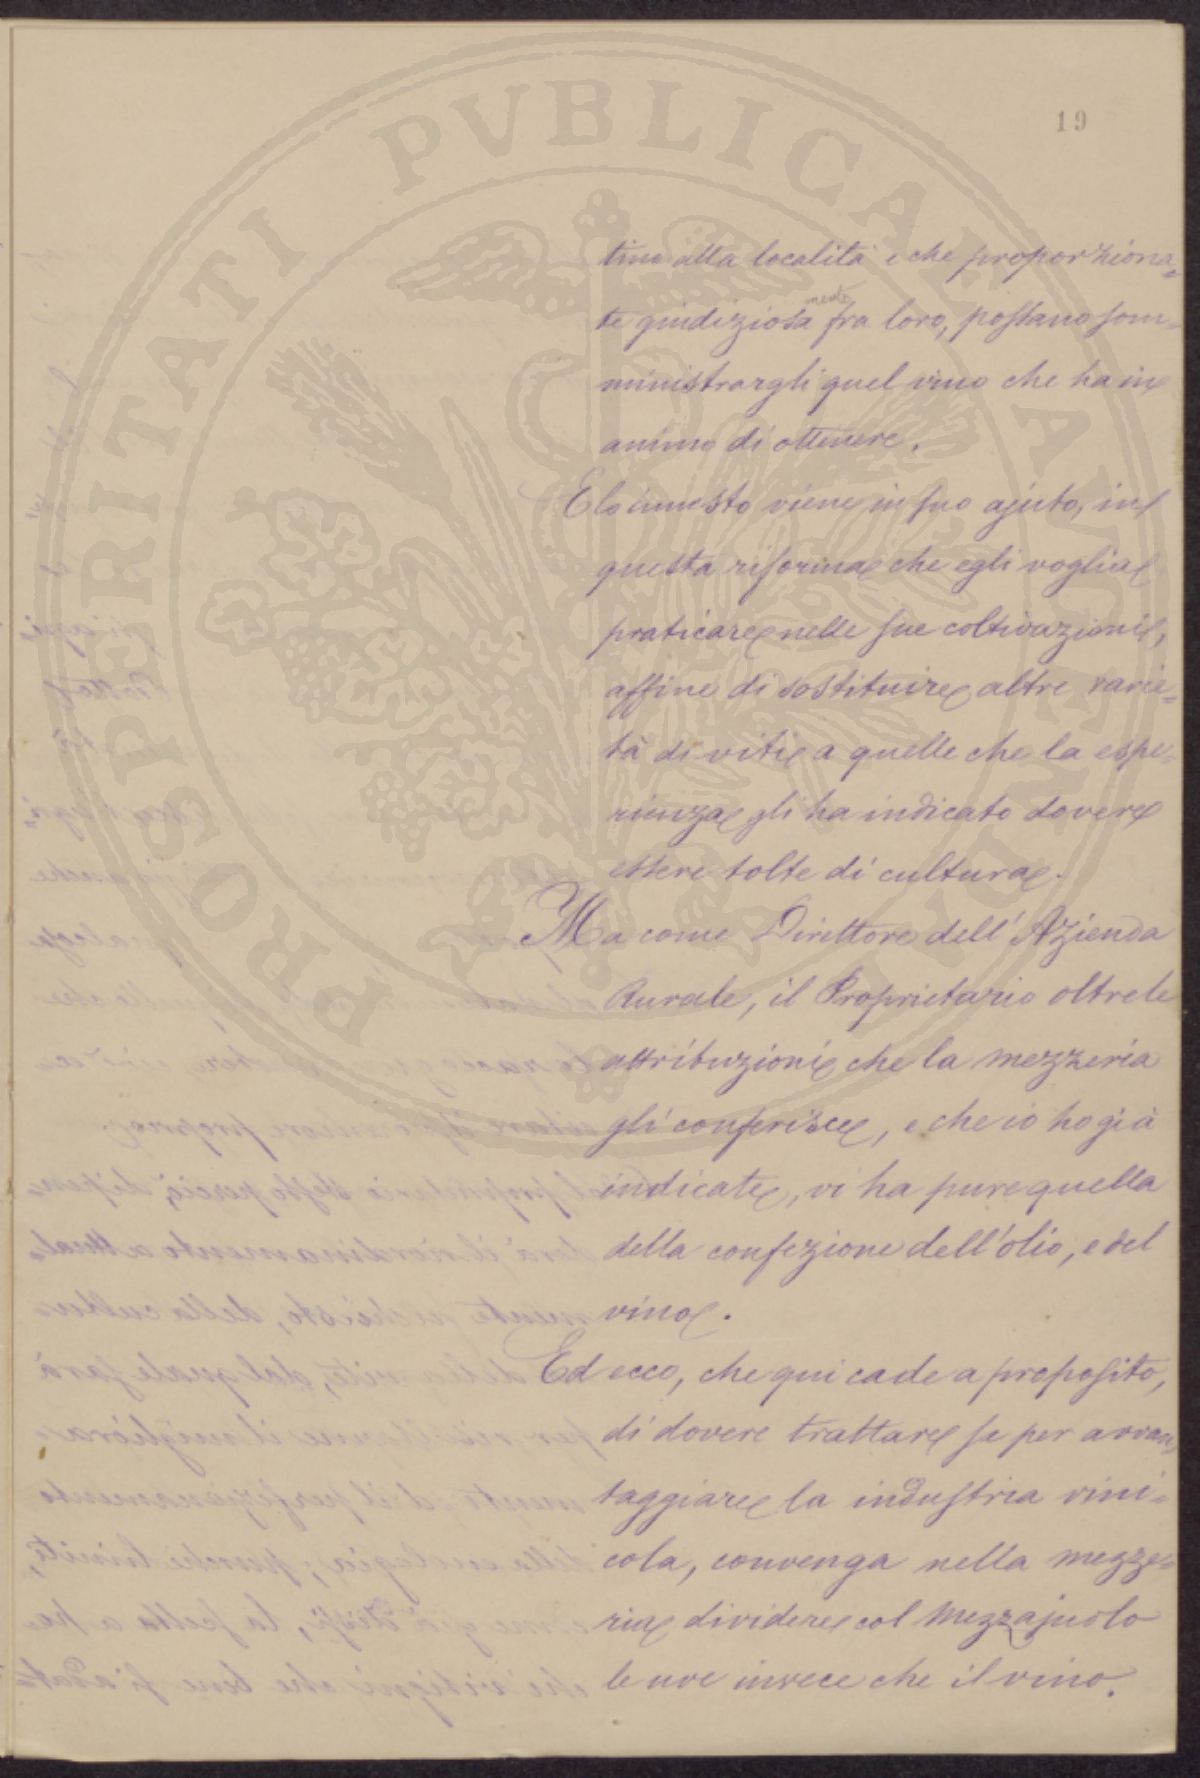 PROSPERITATI PVBLICAE AVGENDAE
19
tino alla località e che proporziona=
te giudiziosamente fra loro, possano som=
ministrargli quel vino che ha in
animo di ottenere.
E lo innesto viene in suo ajuto, in
questa riforma che egli voglia
praticare nelle sue coltivazioni,
affine di sostituire altre varie=
tà di viti a quelle che la espe=
rienza gli ha indicato dovere
essere tolte di cultura.
Ma come Direttore dell'Azienda
Rurale, il Proprietario oltre le
attribuzioni che la mezzeria
gli conferisce, e che io ho già
indicate, vi ha pure quella
della confezione dell'olio, e del
vino.
Ed ecco, che qui cade a proposito,
di dovere trattare se per avvan=
taggiare la industria vini=
cola, convenga nella mezze=
ria dividere col Mezzajuolo
le uve invece che il vino.